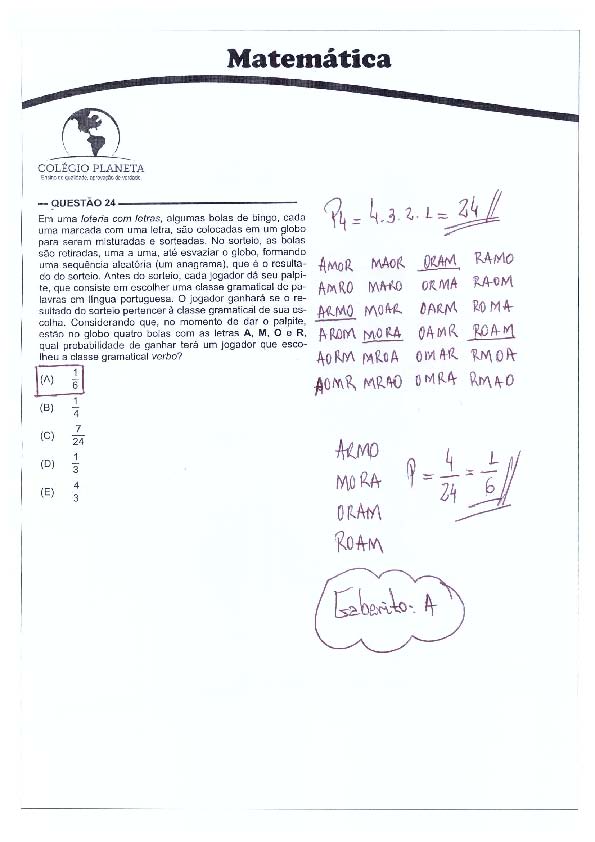 Matemática
COLÉGIO PLANETA
Ensino de qualidade, aprovação de verdade.
QUESTÃO 24
Em uma loteria com letras, algumas bolas de bingo, cada
uma marcada com uma letra, são colocadas em um globo
para serem misturadas e sorteadas. No sorteio, as bolas
são retiradas, uma a uma, até esvaziar o globo, formando
uma sequência aleatória (um anagrama), que é o resulta-
do do sorteio. Antes do sorteio, cada jogador dá seu palpi-
te, que consiste em escolher uma classe gramatical de pa-
lavras em língua portuguesa. O jogador ganhará se o re-
sultado do sorteio pertencer à classe gramatical de sua es-
colha. Considerando que, no momento de dar o palpite,
estão no globo quatro bolas com as letras A, M, O e R,
qual probabilidade de ganhar terá um jogador que esco-
lheu a classe gramatical verbo?
(A) 1/6
(B) 1/4
(C) 7/24
(D) 1/3
(E) 4/3
P4 = 4.3.2.1 = 24//
AMOR MAOR ORAM RAMO
AMRO MARO ORMA RAOM
ARMO MOAR OARM ROMA
AROM MORA OAMR ROAM
AORM MROA OMAR RMOA
AOMR MRAO OMRA RMAO
ARMO
MORA
ORAM
ROAM
P = 4/24 = 1/6//
Gabarito: A